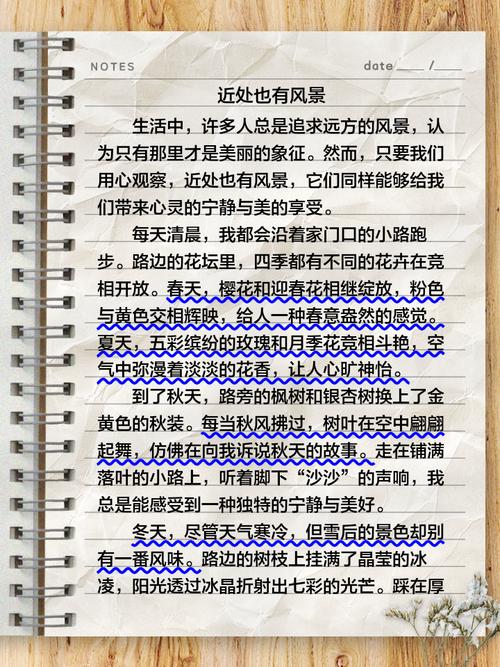 NOTES
date____ /____
近处也有风景
生活中，许多人总是追求远方的风景，认
为只有那里才是美丽的象征。然而，只要我们
用心观察，近处也有风景，它们同样能够给我
们带来心灵的宁静与美的享受。
每天清晨，我都会沿着家门口的小路跑
步。路边的花坛里，四季都有不同的花卉在竞
相开放。春天，樱花和迎春花相继绽放，粉色
与黄色交相辉映，给人一种春意盎然的感觉。
夏天，五彩缤纷的玫瑰和月季花竞相斗艳，空
气中弥漫着淡淡的花香，让人心旷神怡。
到了秋天，路旁的枫树和银杏树换上了金
黄色的秋装。每当秋风拂过，树叶在空中翩翩
起舞，仿佛在向我诉说秋天的故事。走在铺满
落叶的小路上，听着脚下“沙沙”的声响，我
总是能感受到一种独特的宁静与美好。
冬天，尽管天气寒冷，但雪后的景色却别
有一番风味。路边的树枝上挂满了晶莹的冰
凌，阳光透过冰晶折射出七彩的光芒。踩在厚